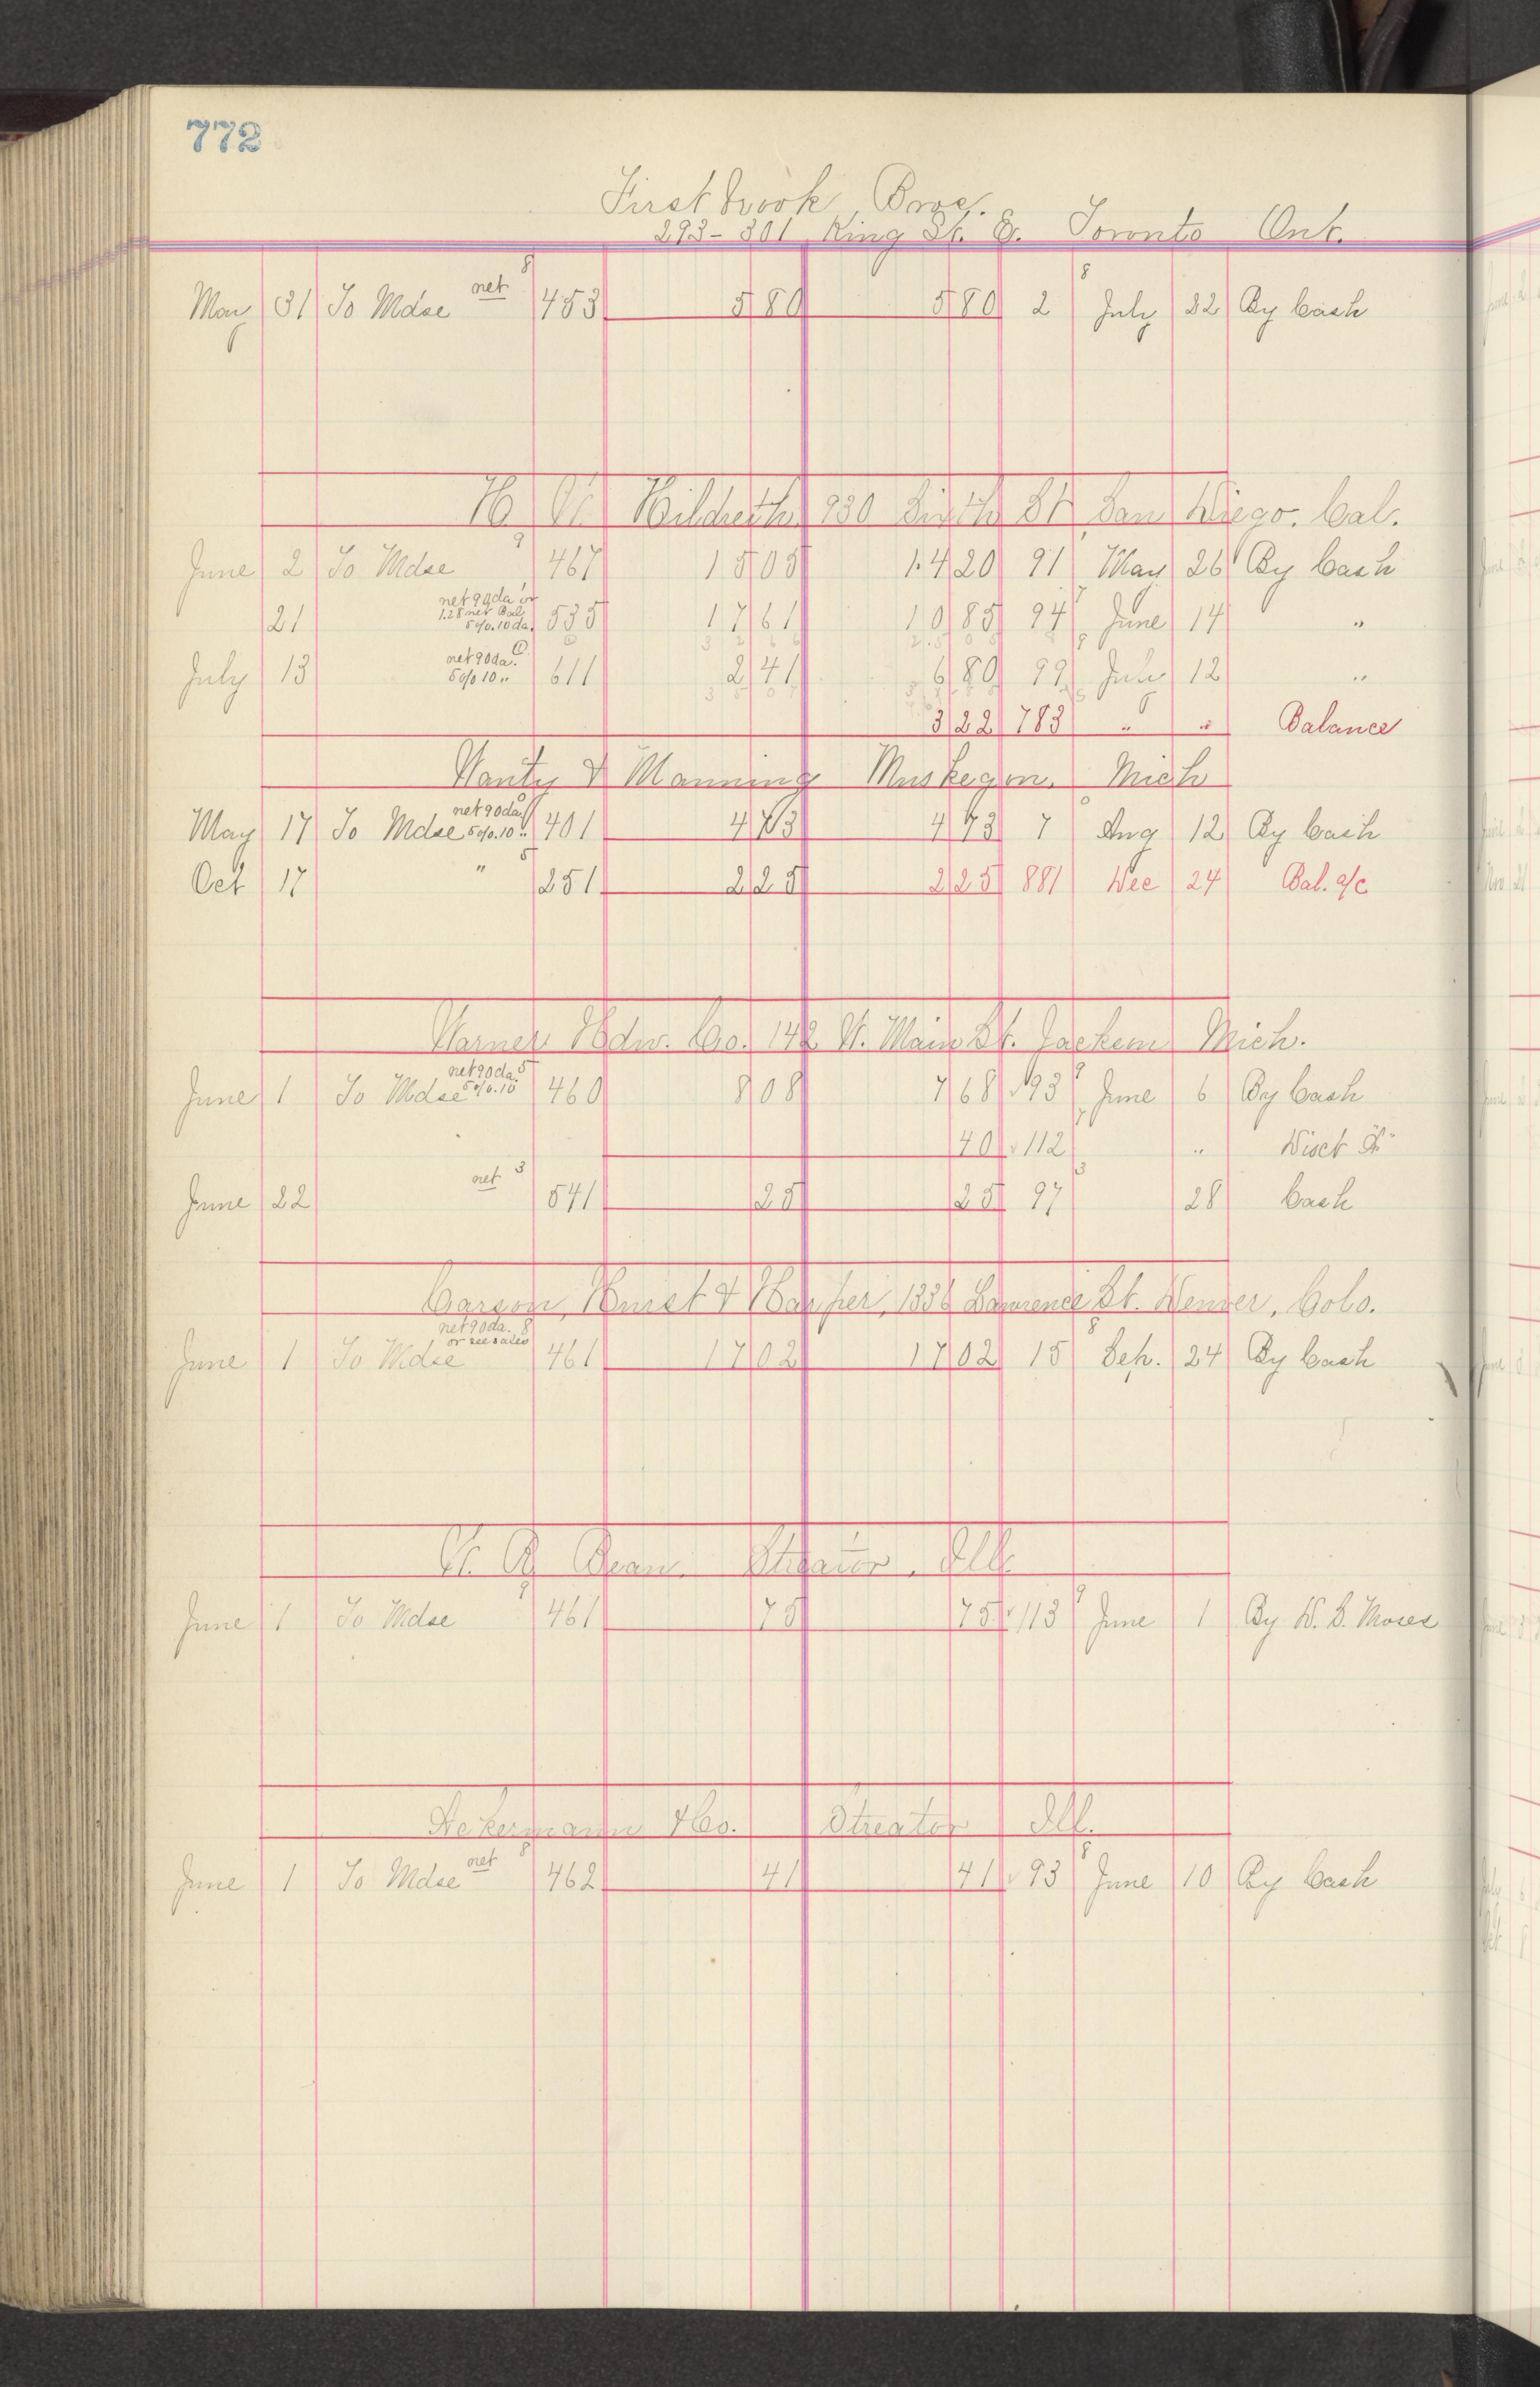 772
Firstbrook Bros.
293-301 King St. E. Toronto Ont.
May 31 To Mdse net 8 453 5 80 5 80 2 8 July 22 By Cash
H. W. Hildreth 930 Sixth St San Diego. Cal.
June 2 To Mdse 9 467 15 05 14 20 91 May 26 By Cash
net 90 da or
21 1.28 net Bal 535 17 61 10 85 94 June 14 "
5%.10 da.
July 13 net 90 da. 611 2 41 6 80 99 July 12 "
5% 10 "
3 22 783 " " Balance
Vanty & Manning Muskegon. Mich
May 17 To Mdse net 90 da 5%.10 " 401 4 73 4 73 7 Aug 12 By Cash
Oct 17 " 5 251 2 25 2 25 881 Dec 24 Bal. a/c
Warner Hdw. Co. 142 W. Main St. Jackson Mich.
June 1 To Mdse net 90 da. 5 5%.10 460 8 08 7 68 93 9 June 6 By Cash
40 112 " Disct
June 22 net 3 541 25 25 97 28 Cash
Carson, Hurst & Harper, 1336 Lawrence St. Denver, Colo.
net 90 da. 8
or see sales
June 1 To Mdse 461 17 02 17 02 15 8 Sep. 24 By Cash
W. A. Bean. Streator. Ill.
June 1 To Mdse 9 461 75 75 113 9 June 1 By W. S. Moses
Ackermann & Co. Streator Ill.
June 1 To Mdse net 8 462 41 41 93 8 June 10 By Cash